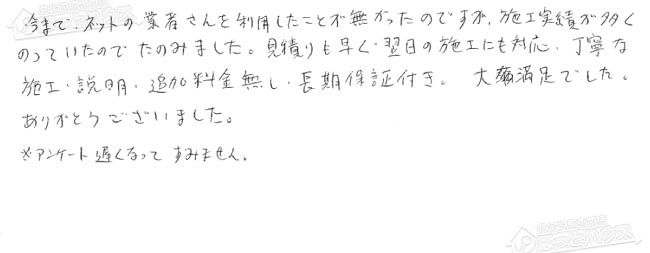 今まで、ネットの業者さんを利用したことが無かったのですが、施工実績が多く
のっていたのでたのみました。見積りも早く、翌日の施工にも対応、丁寧な
施工・説明・追加料金無し・長期保証付き。 大変満足でした。
ありがとうございました。
※アンケート遅くなってすみません。